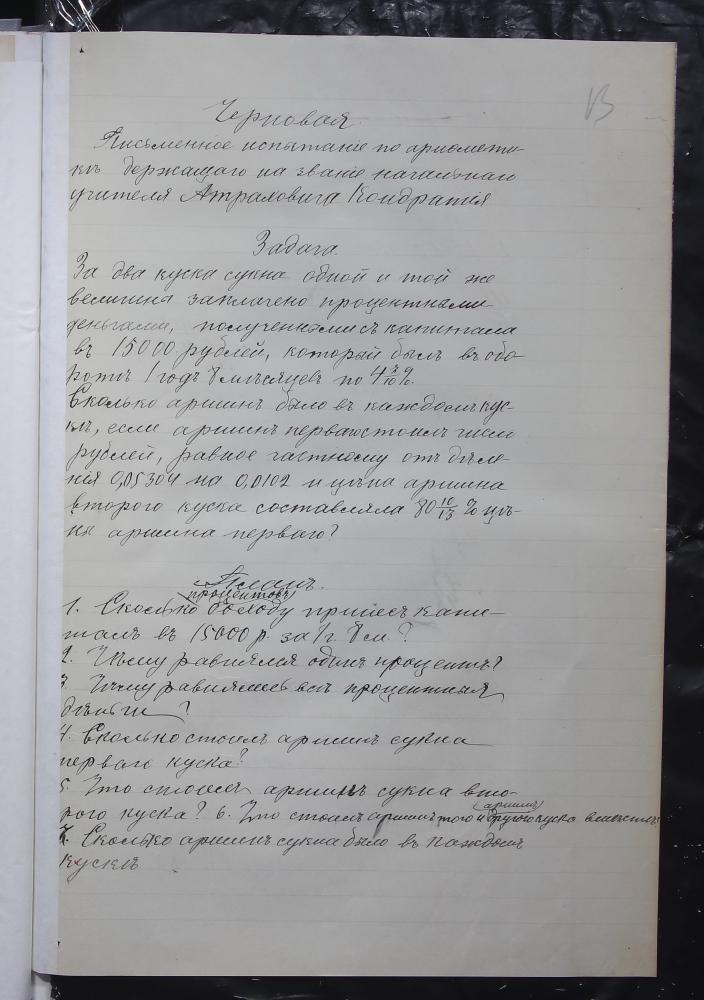 Черновая.
Письменное испытаніе по ариѳмети-
кѣ держащаго на званіе начальнаго
учителя Атраховича Кондратія
Задача.
За два куска сукна одной и той же
величины заплачено процентными
деньгами, полученными съ капитала
въ 15000 рублей, который былъ въ обо-
ротѣ 1 годъ 8 мѣсяцевъ по %.
Сколько аршинъ было въ каждомъ кус-
кѣ, если аршинъ перваго стоилъ число
рублей, равное частному отъ дѣле-
нія 0,05304 на 0,0102 и цѣна аршина
второго куска составляла 80 10/13 % цѣ-
ны аршина перваго?
Планъ.
процентовъ
1. Сколько доходу принесъ капи-
талъ въ 15000 р. за 1 г. 8 м.?
2. Чему равнялся одинъ процентъ?
3. Чему равнялись всѣ процентныя
деньги?
4. Сколько стоилъ аршинъ сукна
перваго куска?
5. Что стоилъ аршинъ сукна вто-
рого куска? 6. Что стоилъ аршинъ того и (аршинъ) другого куска вмѣстѣ?
7. Сколько аршинъ сукна было въ каждомъ
кускѣ